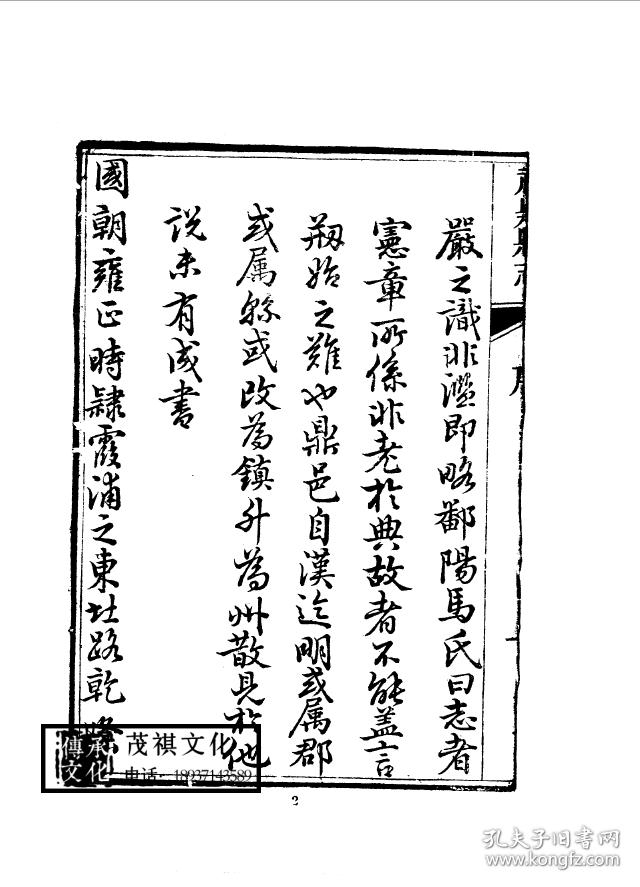 嚴之識非濫即略鄱陽馬氏曰志者
憲章所係非老於典故者不能蓋言
剏始之難也鼎邑自漢迄明或属郡
或属縣或改為鎮升為州散見於他
説未有成書
國朝雍正時隷霞浦之東壮路乾
2
傳承文化
茂祺文化
电话：18937143589
孔夫子旧书网
www.kongfz.com